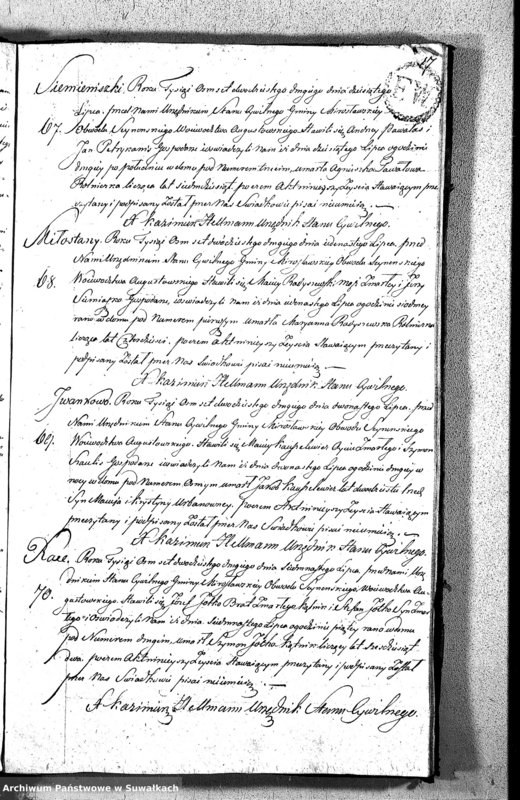 17
Siemieniszki. Roku Tysiąc Osmset dwódziestego drugiego dnia dziesiątego
Lipca, przed Nami Urzędnikiem Stanu Cywilnego Gminy Mirosławskiey
67. Obwodu Seynenskiego Woiewództwa Augustowskiego Stawili się Andrzey Pawałas i
Jan Gospodarze i oswiadczyli Nam iż dnia dziesiątego Lipca o godzinie
drugiey po południu w domu pod Numerem trzecim, umarła Agnieszka Pawałowa
Rolniczka licząca lat siedmdziesiąt, poczem Akt ninieyszy Zeyścia Stawaiącym prze
czytany i podpisany został przez Nas Swiadkowie pisać nieumieią.
X. Kazimierz Hellmann Urzędnik Stanu Cywilnego.
Miłostany. Roku Tysiąc Osmset dwódziestego drugiego dnia iedenastego Lipca, przed
Nami Urzędnikiem Stanu Cywilnego Gminy Mirosławskiey Obwodu Seynenskiego
68. Woiewództwa Augustowskiego Stawili się Maciey Radyszewski mąż Zmarłey i Jerzy
Gospodarze, i oswiadczyli Nam iż dnia iedenastego Lipca o godzinie siodmey
rano w domu pod Numerem pierwszym umarła Maryanna Radyszewska Rolniczka
licząca lat Czterdzieści, poczem Akt ninieyszy Zeyścia Stawaiącym przeczytany i
podpisany został przez Nas Swiadkowie pisać nieumieią.
X. Kazimierz Hellmann Urzędnik Stanu Cywilnego.
Iwankowo. Roku Tysiąc Osmset dwódziestego drugiego dnia dwonastego Lipca, przed
Nami Urzędnikiem Stanu Cywilnego Gminy Mirosławskiey Obwodu Seynenskiego
69. Woiewództwa Augustowskiego Stawili się Maciey Oyciec Zmarłego i Szymon
Gospodarze i oswiadczyli Nam iż dnia dwonastego Lipca o godzinie drugiey w
nocy w domu pod Numerem Osmym umarł Jakób lat dwadzieścia
Syn Macieja i Krystyny Urbanowney. poczem Akt ninieyszy Zeyścia Stawaiącym
przeczytany i podpisany został przez Nas Swiadkowie pisać nieumieią.
X. Kazimierz Hellmann Urzędnik Stanu Cywilnego.
Roku Tysiąc Osmset dwódziestego drugiego dnia siedmnastego Lipca przed Nami Urzę
dnikiem Stanu Cywilnego Gminy Mirosławskiey Obwodu Seynenskiego, Woiewództwa Au
70. gustowskiego. Stawili się Józef Jotko Brat Zmarłego i Stefan Jotko Syn Zmar
łego i Oswiadczyli Nam iż dnia Siedmnastego Lipca o godzinie piątey rano w domu
pod Numerem drugim, umarł Szymon Jotko liczący lat sześćdziesiąt
dwa. poczem Akt ninieyszy Zeyścia Stawaiącym przeczytany i podpisany został
przez Nas Swiadkowie pisać nieumieią.
X. Kazimierz Hellmann Urzędnik Stanu Cywilnego.
Archiwum Państwowe w Suwałkach